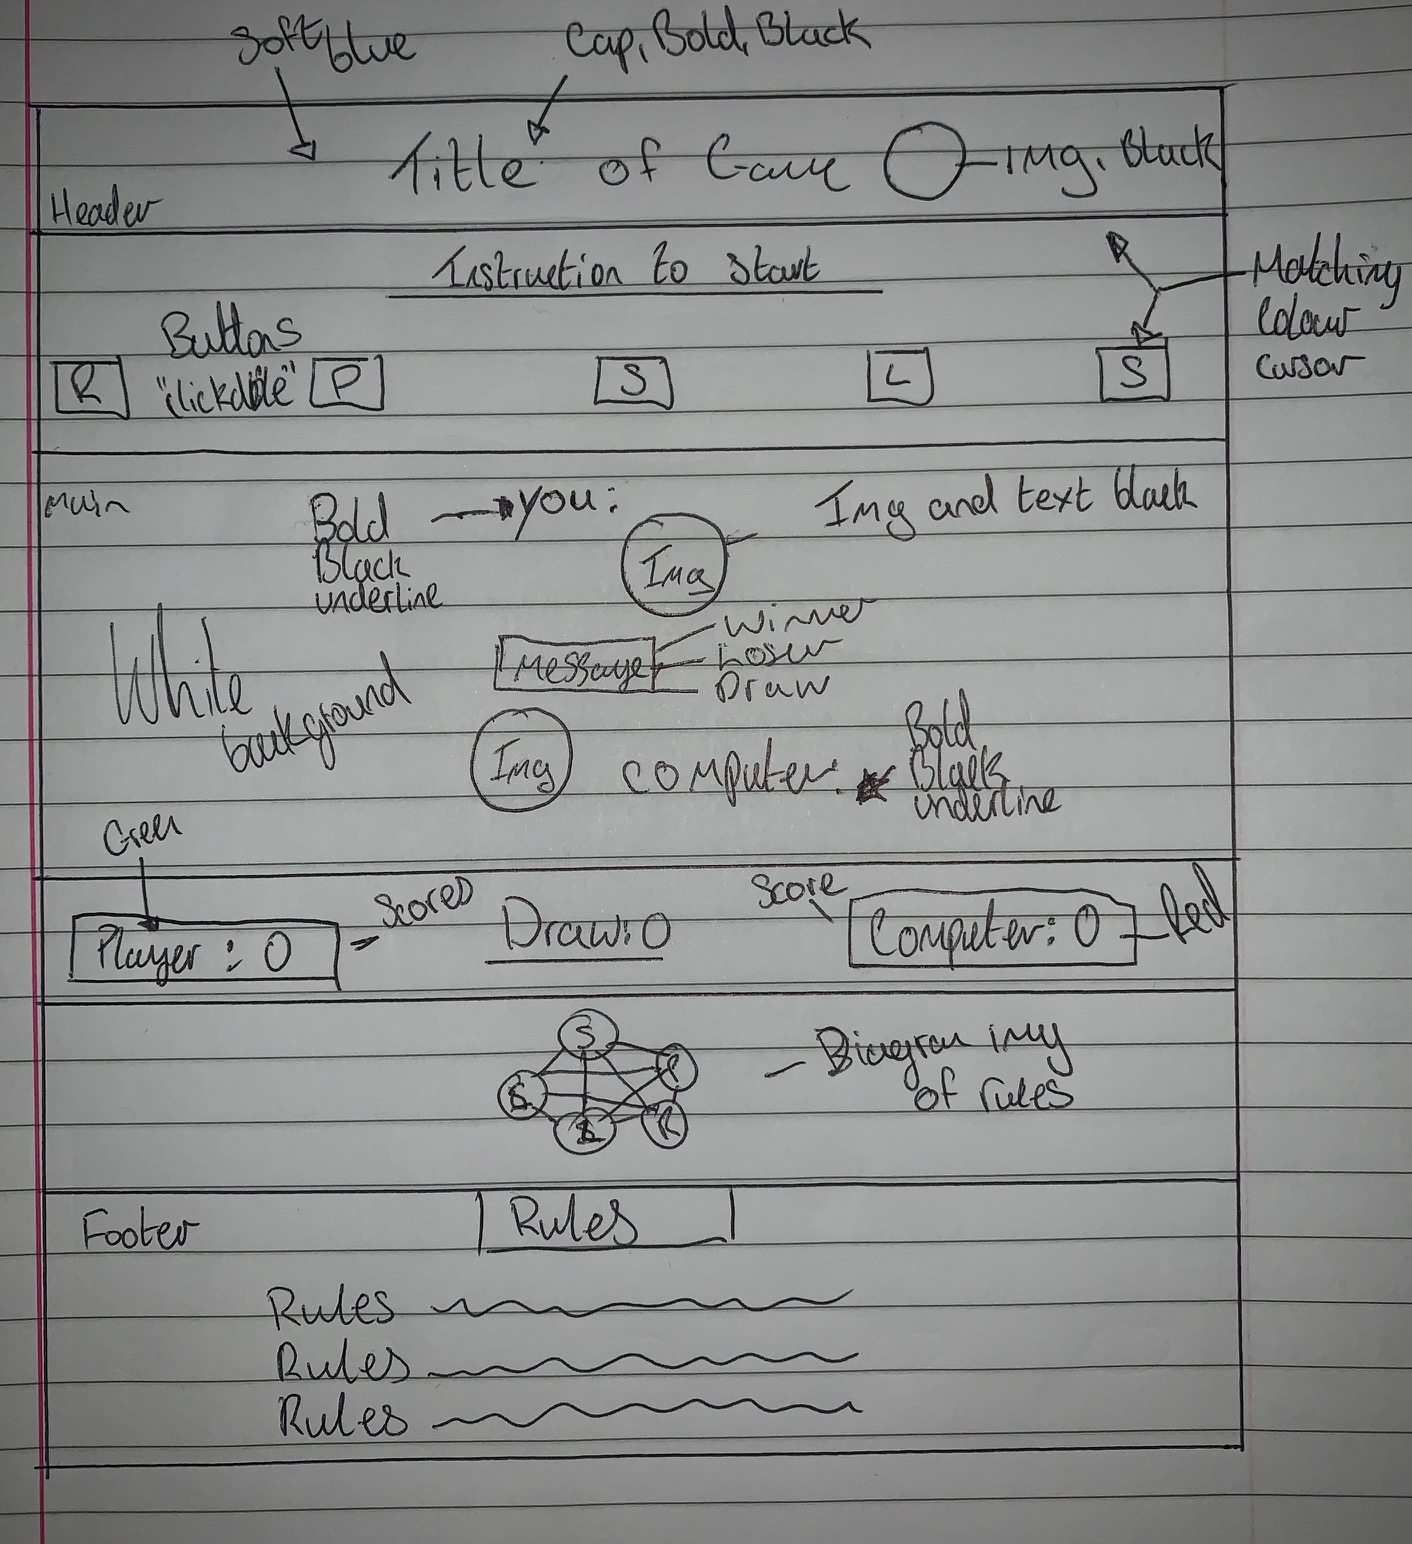 Soft blue
Cap, Bold, Black
Title of Game
IMG. Black
Header
Instruction to start
Matching
Colour
cursor
Buttons
"clickable"
R P S L S
Main
Bold
Black
underline
you:
Img and text black
Img
White
background
Message
Winner
Loser
Draw
Img
computer:
Bold
Black
underline
Green
Player : 0
Scores
Draw: 0
Score
Computer: 0
Red
S
R
Diagram img
of rules
Footer
Rules
Rules
Rules
Rules